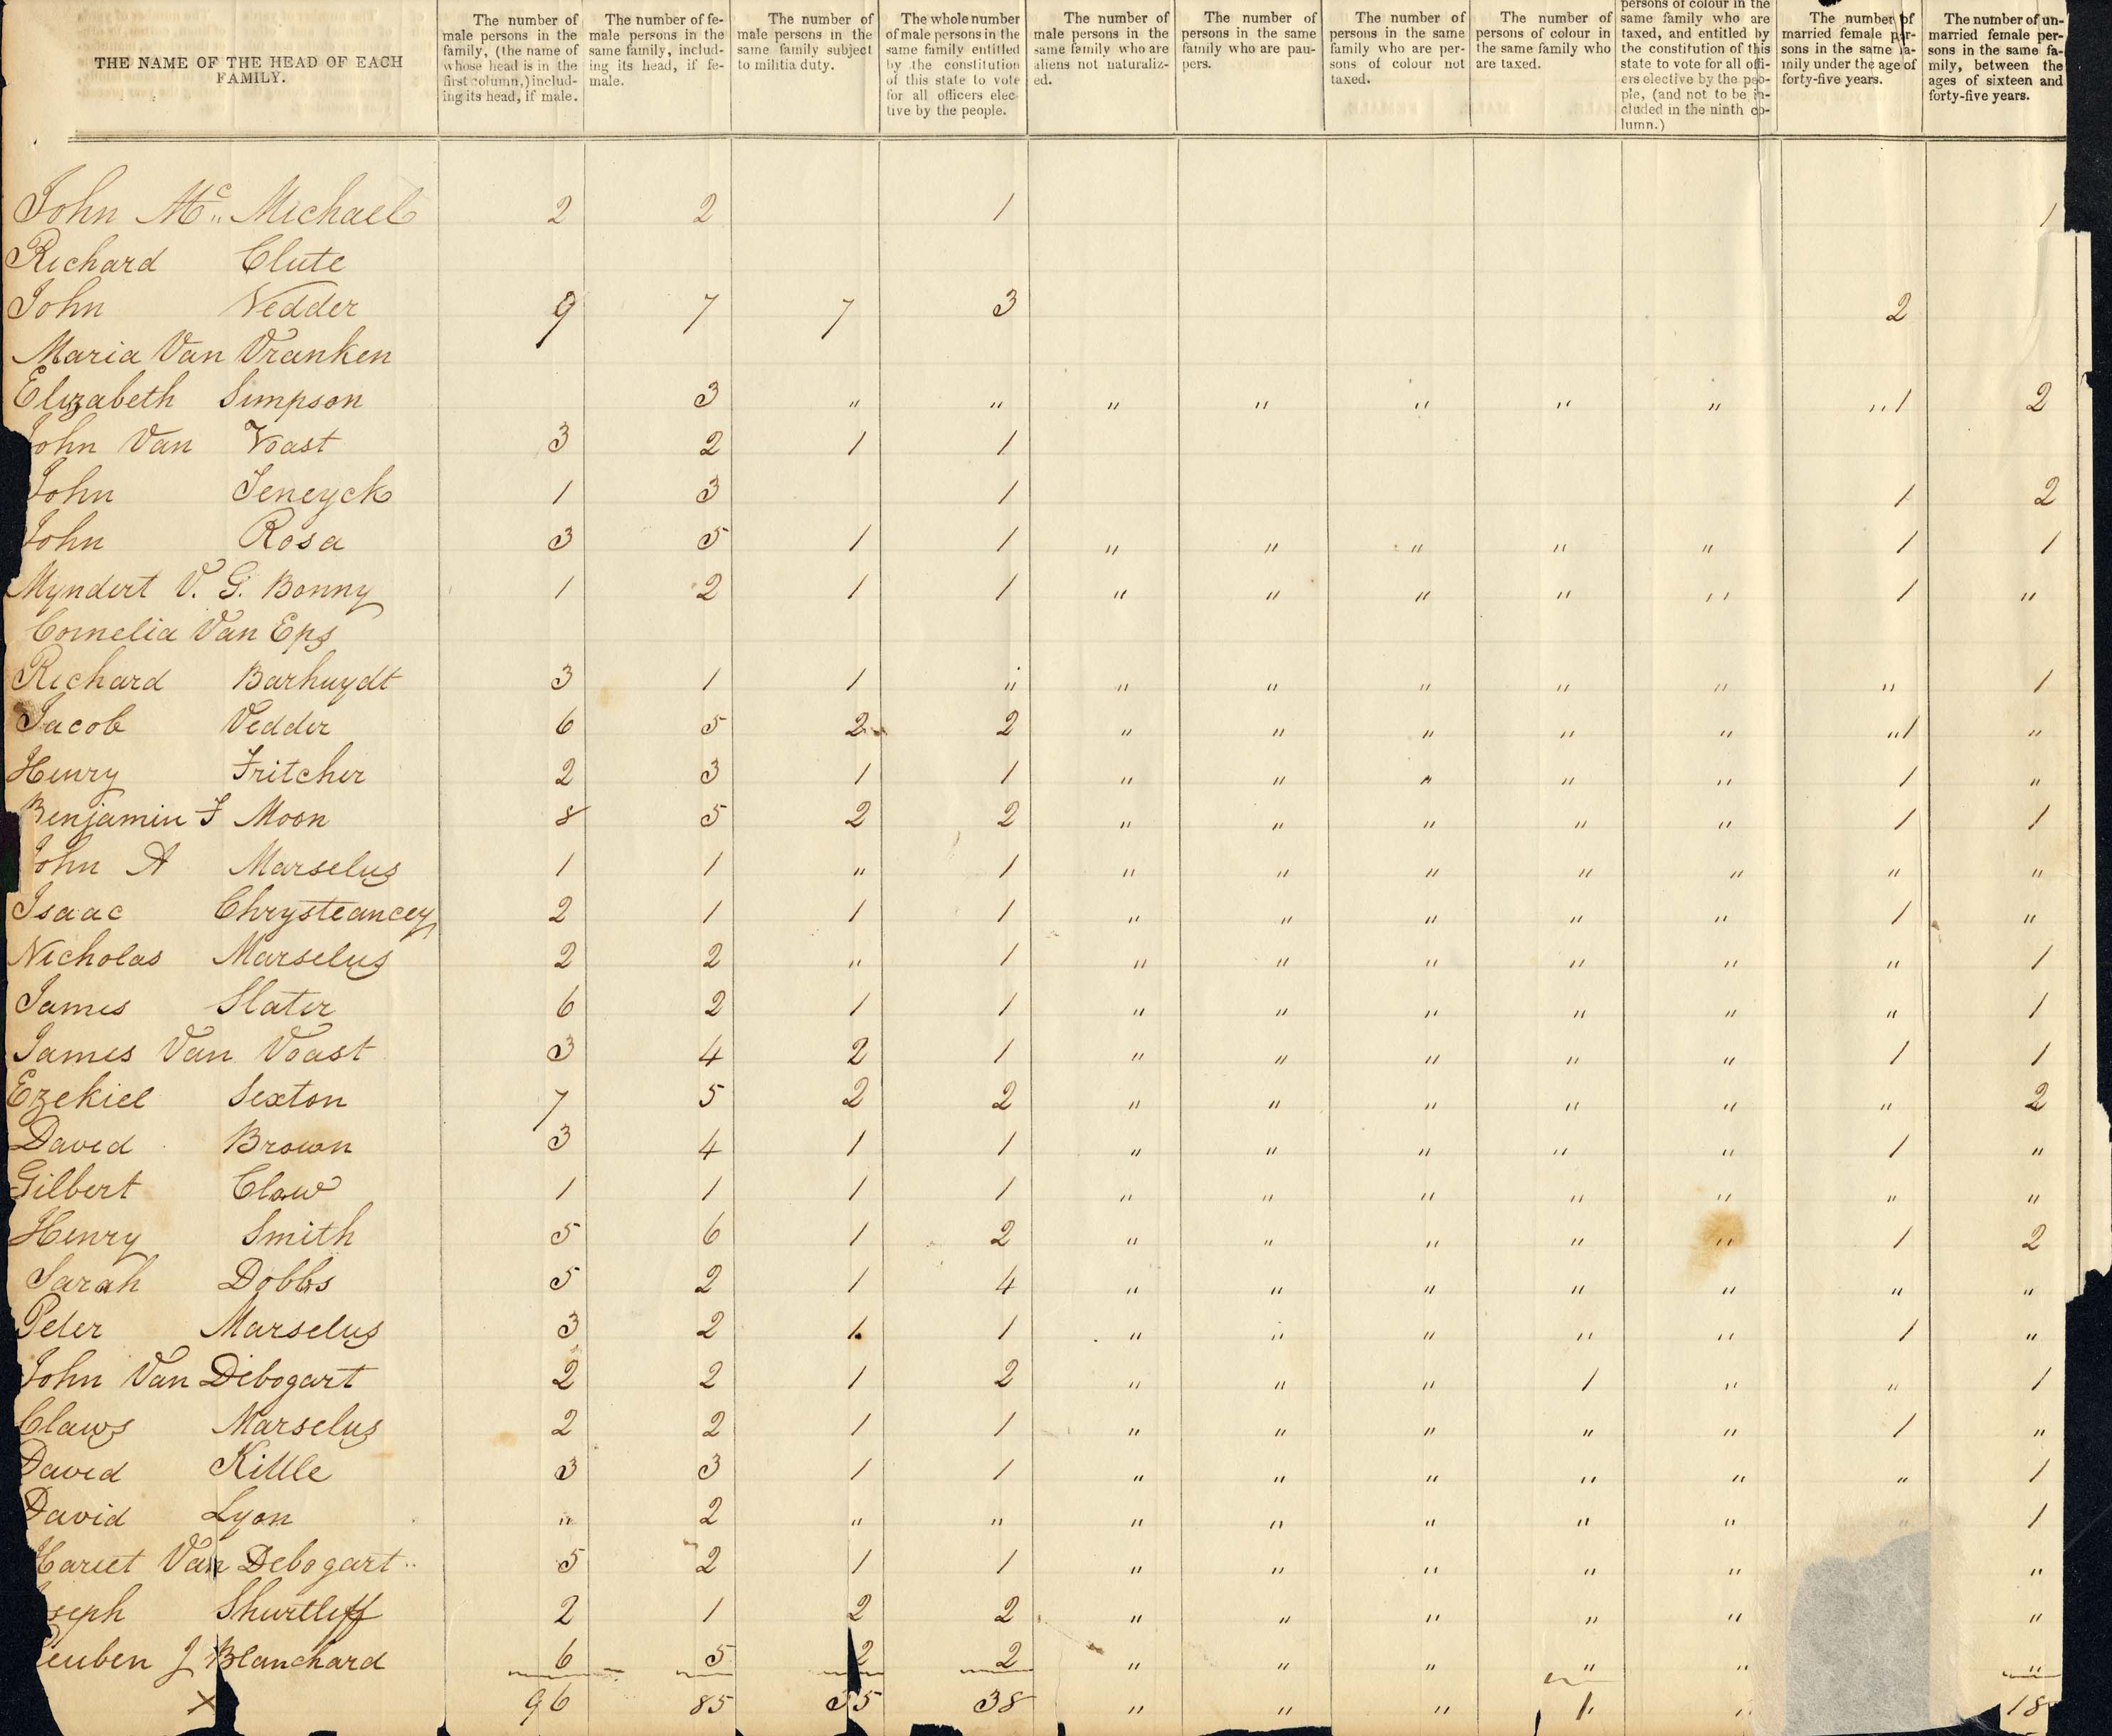 THE NAME OF THE HEAD OF EACH FAMILY.
The number of male persons in the family, (the name of whose head is in the first column,) including its head, if male.
The number of female persons in the same family, including its head, if female.
The number of male persons in the same family subject to militia duty.
The whole number of male persons in the same family entitled by the constitution of this state to vote for all officers elective by the people.
The number of male persons in the same family who are aliens not naturalized.
The number of persons in the same family who are paupers.
The number of persons in the same family who are persons of colour not taxed.
The number of persons of colour in the same family who are taxed.
persons of colour in the same family who are taxed, and entitled by the constitution of this state to vote for all officers elective by the people, (and not to be included in the ninth column.)
The number of married female persons in the same family under the age of forty-five years.
The number of unmarried female persons in the same family, between the ages of sixteen and forty-five years.
John Mc Michael 2 2 1 1
Richard Clute
John Vedder 9 7 7 3 2
Maria Van Vranken
Elizabeth Simpson 3 " " " " " " " " 1 2
John Van Voast 3 2 1 1
John Teneyck 1 3 1 1 2
John Rosa 3 5 1 1 " " " " " 1 1
Myndert V. G. Bonny 1 2 1 1 " " " " " 1 "
Cornelia Van Eps
Richard Barhuydt 3 1 1 " " " " " " " 1
Jacob Vedder 6 5 2 2 " " " " " " 1 "
Henry Fritcher 2 3 1 1 " " " " " 1 "
Benjamin F Moon 8 5 2 2 " " " " " 1 1
John A Marselus 1 1 " 1 " " " " " " "
Isaac Chrysteancey 2 1 1 1 " " " " " 1 "
Nicholas Marselus 2 2 " 1 " " " " " " 1
James Slater 6 2 1 1 " " " " " " 1
James Van Voast 3 4 2 1 " " " " " 1 1
Ezekiel Sexton 7 5 2 2 " " " " " " 2
David Brown 3 4 1 1 " " " " " 1 "
Gilbert Claw 1 1 1 1 " " " " " " "
Henry Smith 5 6 1 2 " " " " " 1 2
Sarah Dobbs 5 2 1 4 " " " " " " "
Peter Marselus 3 2 1 1 " " " " " 1 "
John Van Debogart 2 2 1 2 " " " 1 " " 1
Claws Marselus 2 2 1 1 " " " " " 1 "
David Kittle 3 3 1 1 " " " " " " 1
David Lyon " 2 " " " " " " " " 1
Hariet Van Debogart 5 2 1 1 " " " " " "
seph Shurtleff 2 1 2 2 " " " " " "
euben J Blanchard 6 5 2 2 " " " " " "
x 96 85 35 38 " " " 1 " 18